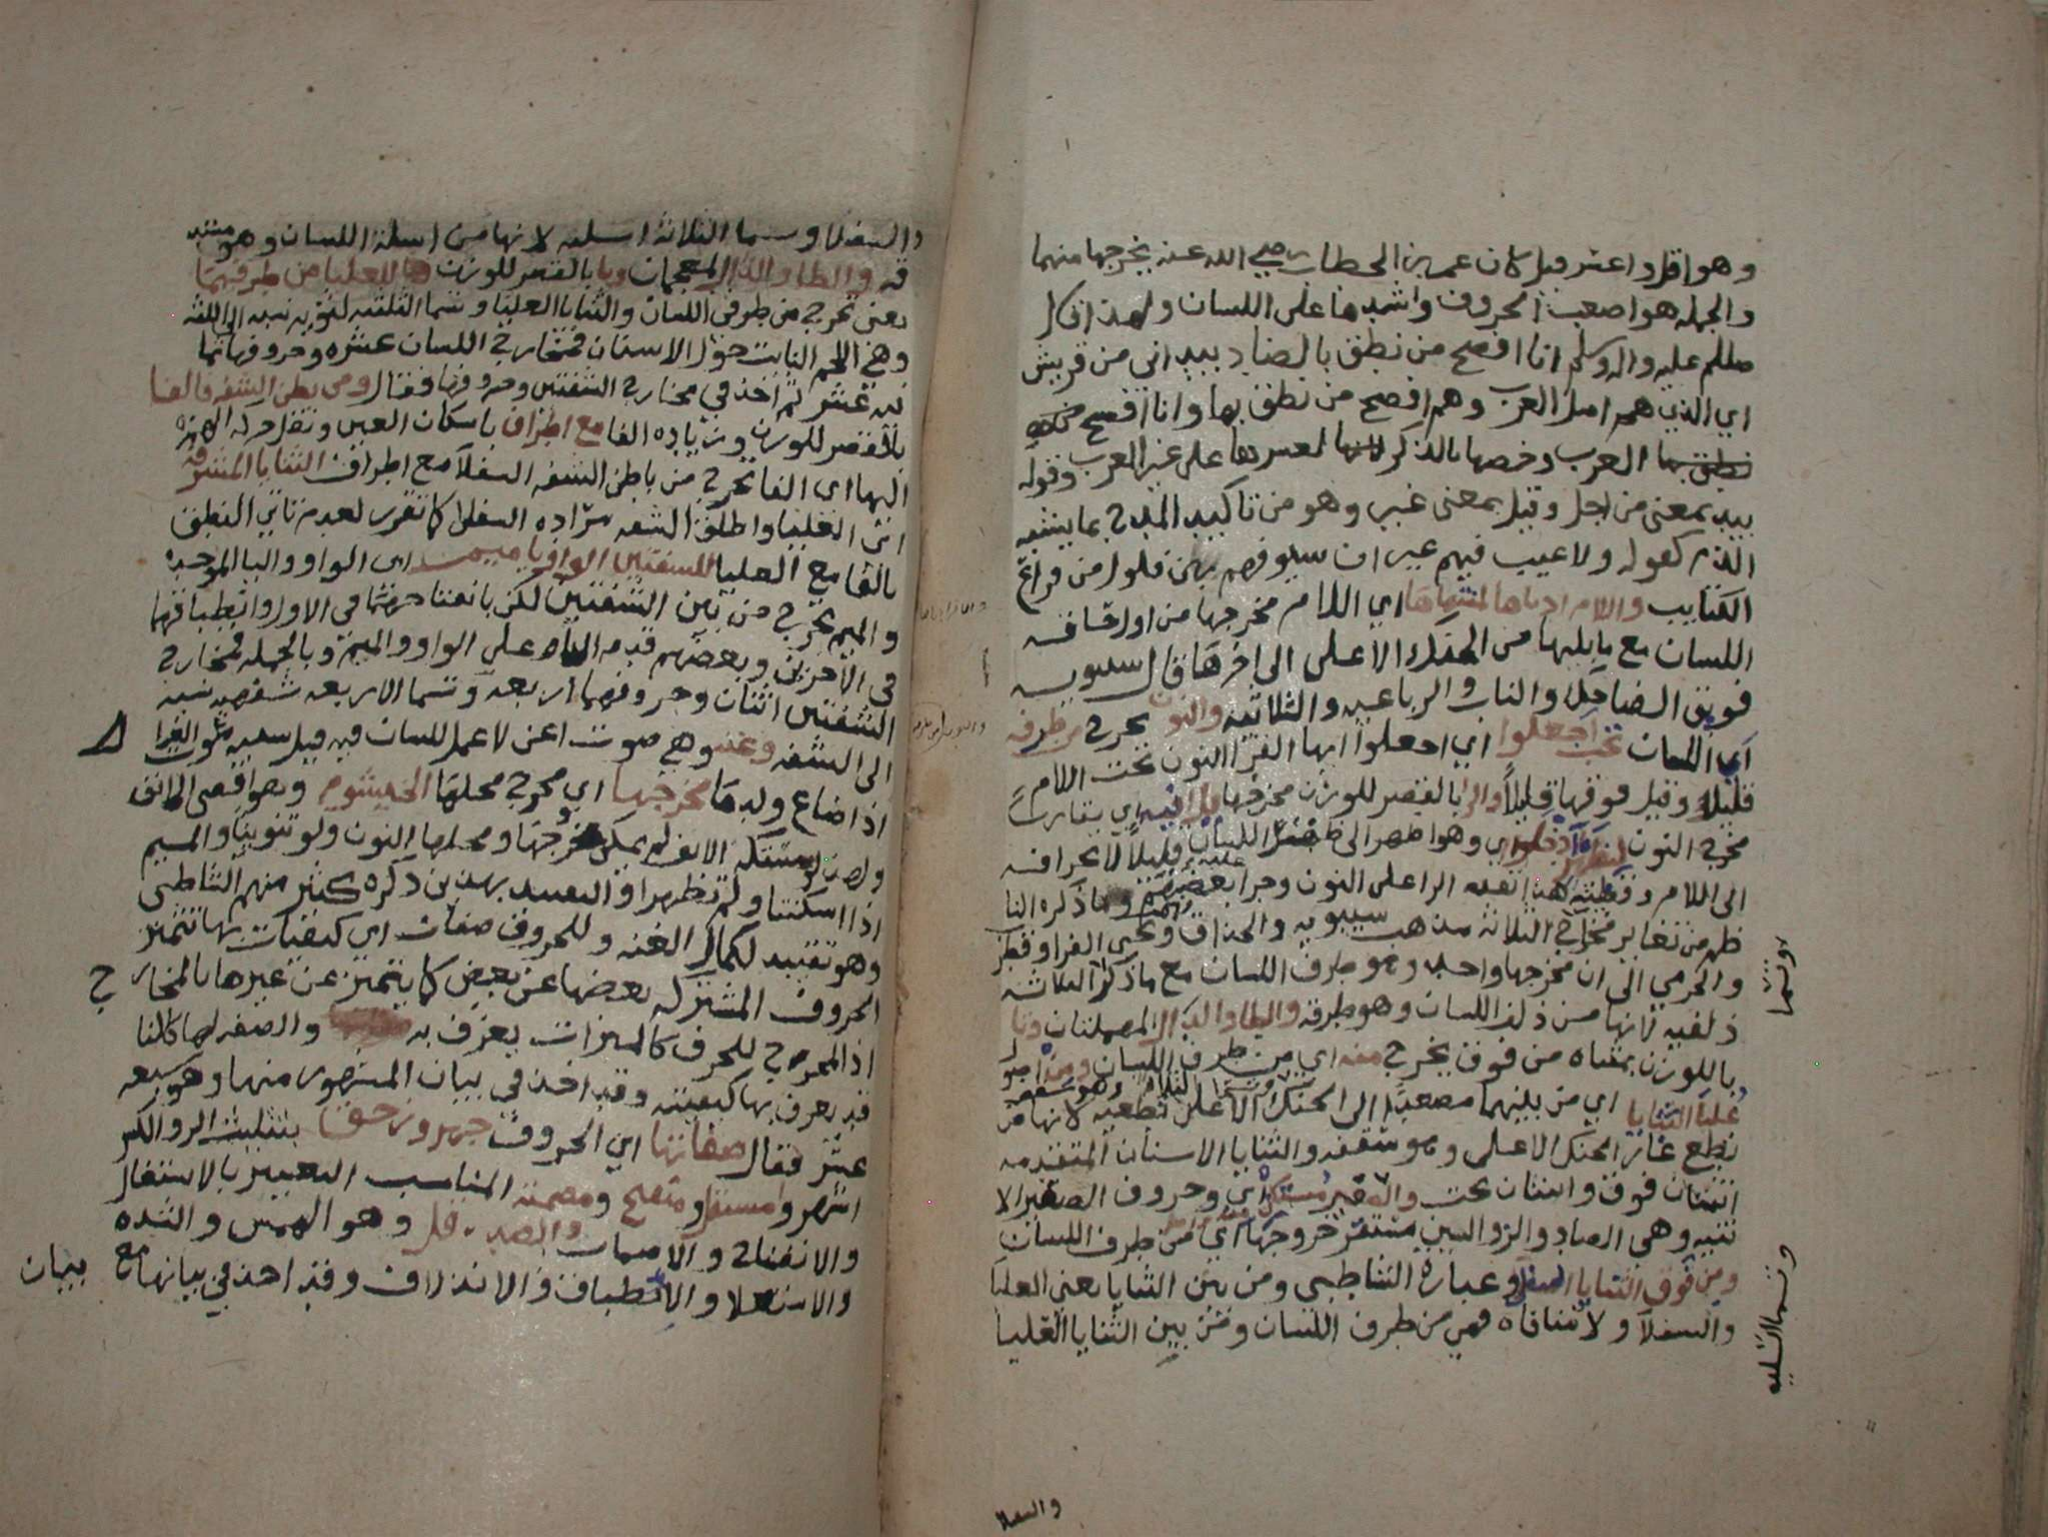 وهو اقل واعسر قيل كان عمر بن الخطاب رضي الله عنه يخرجها منهما
والجمله هو اصعب الحروف واشدها على اللسان ولهذا قال
صللم عليه واله وسلم انا افصح من نطق بالضاد بيد اني من قريش
اي الذين هم اصل العرب وهم افصح من نطق بها وانا افصح من
نطق بها العرب وخصها بالذكر لعسرها على غير العرب وقوله
بيد بمعنى من اجل وقيل بمعنى غير وهو من تاكيد المدح بما يشبه
الذم كقوله ولا عيب فيهم غير ان سيوفهم بهن فلول من قراع
الكتايب واللام ادناها لمنتهاها اي اللام مخرجها من اول حافه
اللسان مع ما يليها من الحنك الاعلى الى اخرها قال سيبويه
فويق الضاحك والناب والرباعيه والثنيه والنون تخرج من طرفه
اي اللسان تحت اجعلوا اي اجعلوا ايها القرا النون تحت اللام
قليلا وقيل فوقها قليلا والرا بالقصر للوزن مخرجها يدانيه اي يقارب
مخرج النون لظهر ادخلوا اي وهو اظهر الى ظهر اللسان قليلا لانحرافه
الى اللام
ظهر من تغاير مخارج الثلاثه مذهب سيبويه والحذاق ويحيى الفرا وقطرب
والجرمي الى ان مخرجها واحد وهو طرف اللسان مع ما ذكر
ذلقيه لانها من ذلق اللسان وهو طرفه والطا والدال المهملتان وتا
باللوزن بمثناه من فوق يخرج منه اي من طرف اللسان ومن اصول
عليا الثنايا اي من بينهما مصعدا الى الحنك الاعلى نطعيه لانها من
نطع غار الحنك الاعلى وهو سقفه والثنايا الاسنان المتقدمه
اثنتان فوق واثنتان تحت والصفير مستكن اي وحروف الصفير الا
تيه وهي الصاد والزا والسين مستقر خروجها اي من طرف اللسان
ومن فوق الثنايا السفلى وعباره الشاطبي ومن بين الثنايا يعني العليا
والسفلا ولا منافاه فهي من طرف اللسان ومن بين الثنايا العليا
وتسما
وتسما اسليه
والسفلا
والسفلا وسما الثلاثه اسليه لانها من اسلة اللسان وهو مستد
قه والظا والذال المعجمات وثا بالقصر للوزن هذا للعليا من طرفيهما
يعني تخرج من طرفي اللسان والثنايا العليا وتسما الثلثه لثويه نسبه الى اللثه
وهي اللحم النابت حول الاسنان فمخارج اللسان عشره وحروفها ثما
نيه عشر ثم اخذ في مخارج الشفتين وحروفها فقال ومن بطن الشفه فالفا
بالقصر للوزن وزياده الفا مع اطراف باسكان العين ونقل حركه الهمزه
اليها اي الفا تخرج من باطن الشفه السفلا مع اطراف الثنايا المشرفه
اي العليا واطلق الشفه ومراده السفلا كما تقرر لعدم تاتي النطق
بالفا مع العليا للشفتين الواو با ميم اي الواو والبا الموحده
والميم تخرج من بين الشفتين لكن بانفتاحهما في الاول وانطباقهما
في الاخرين وبعضهم قدم الباء على الواو والميم وبالجمله فمخارج
الشفتين اثنان وحروفهما اربعه وتسما الاربعه شفهيه نسبه
الى الشفه وغنه وهي صوت اغن لا عمل للسان فيه قيل شبيه بصوت الغزا
ل
اذا ضاع ولدها مخرجها اي مخرج محلها الخيشوم وهو اقصى الانف
ولهذا لو مسكت الانف لم يمكن خروجها ومحلها النون ولو تنوينا والميم
اذا اسكنتا ولم تظهرا والتقييد بهذين ذكره كثير منهم الشاطبي
وهو تقييد لكمال الغنه وللحروف صفات اي كيفيات بها تتميز
الحروف المشتركه بعضها عن بعض كما يتميز عن غيرها بالمخار
ج
اذ المخرج للحرف كالميزان يعرف به والصفه لها كالنا
قد يعرف بها كيفيته وقد اخذ في بيان المشهور منها وهو سبعه
عشر فقال صفاتها اي الحروف جهر ورخو بتثليث الرا والكسر
اشهر ومستفل ومنفتح ومصمته المناسب التعبير بالاستفال
والانفتاح والاصمات والضد قل وهو الهمس والشده
والاستعلا والانطباق والانذلاق وقد اخذ في بيانها مع بيان